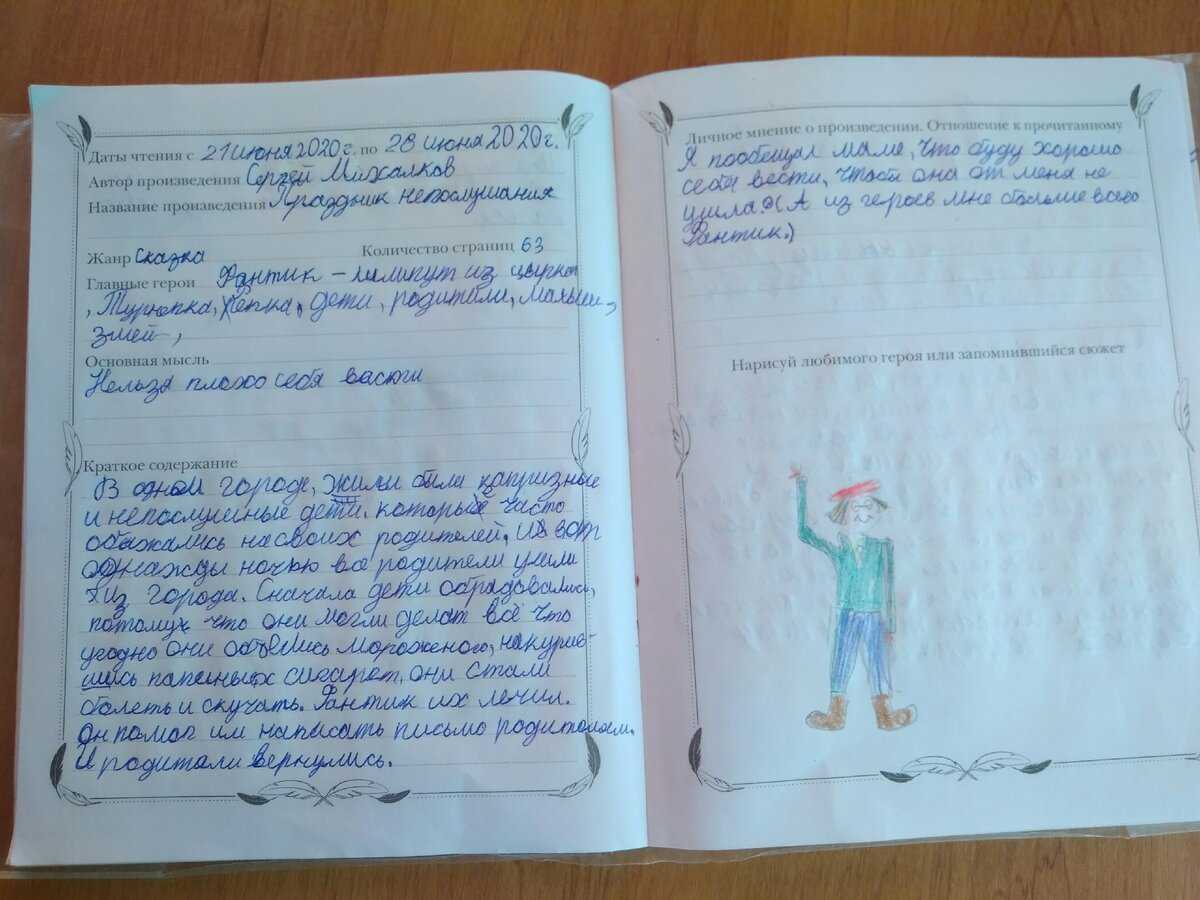 Даты чтения с 21 июня 2020 г. по 28 июня 2020 г.
Автор произведения Сергей Михалков
Название произведения Праздник непослушания
Жанр Сказка Количество страниц 63
Главные герои Фантик – лилипут из цирка
, Турнепка, Репка, дети, родители, малыши,
змей,
Основная мысль
Нельзя плохо себя вести
Краткое содержание
В одном городе, жили были капризные
и непослушные дети. которые часто
обижались на своих родителей, и вот
однажды ночью все родители ушли
из города. Сначала дети обрадовались,
потому что они могли делат всё что
угодно они объелись мороженого, накурив-
шись папиных сигарет, они стали
болеть и скучать. Фантик их лечил.
Он помог им написать письмо родителям.
И родители вернулись.
Личное мнение о произведении. Отношение к прочитанному
Я пообещал маме, что буду хорошо
себя вести, чтоб она от меня не
ушла. (А из героев мне больше всего
Фантик.)
Нарисуй любимого героя или запомнившийся сюжет